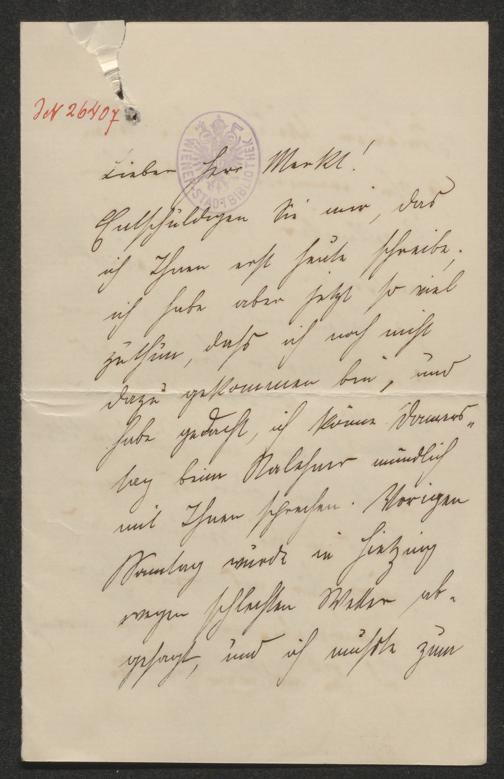 JN 26407
WIENER STADTBIBLIOTHEK
Lieber Herr Merkt!
Entschuldigen Sie mir, das
ich Ihnen erst heute schreibe;
ich habe aber jetzt so viel
zu thun, daß ich noch nicht
dazu gekommen bin, und
habe gedacht, ich könne Donners-
tag beim mündlich
mit Ihnen sprechen. Vorigen
Sonntag wurde in Hietzing
wegen schlechten Wetter ab-
gesagt, und ich mußte zum